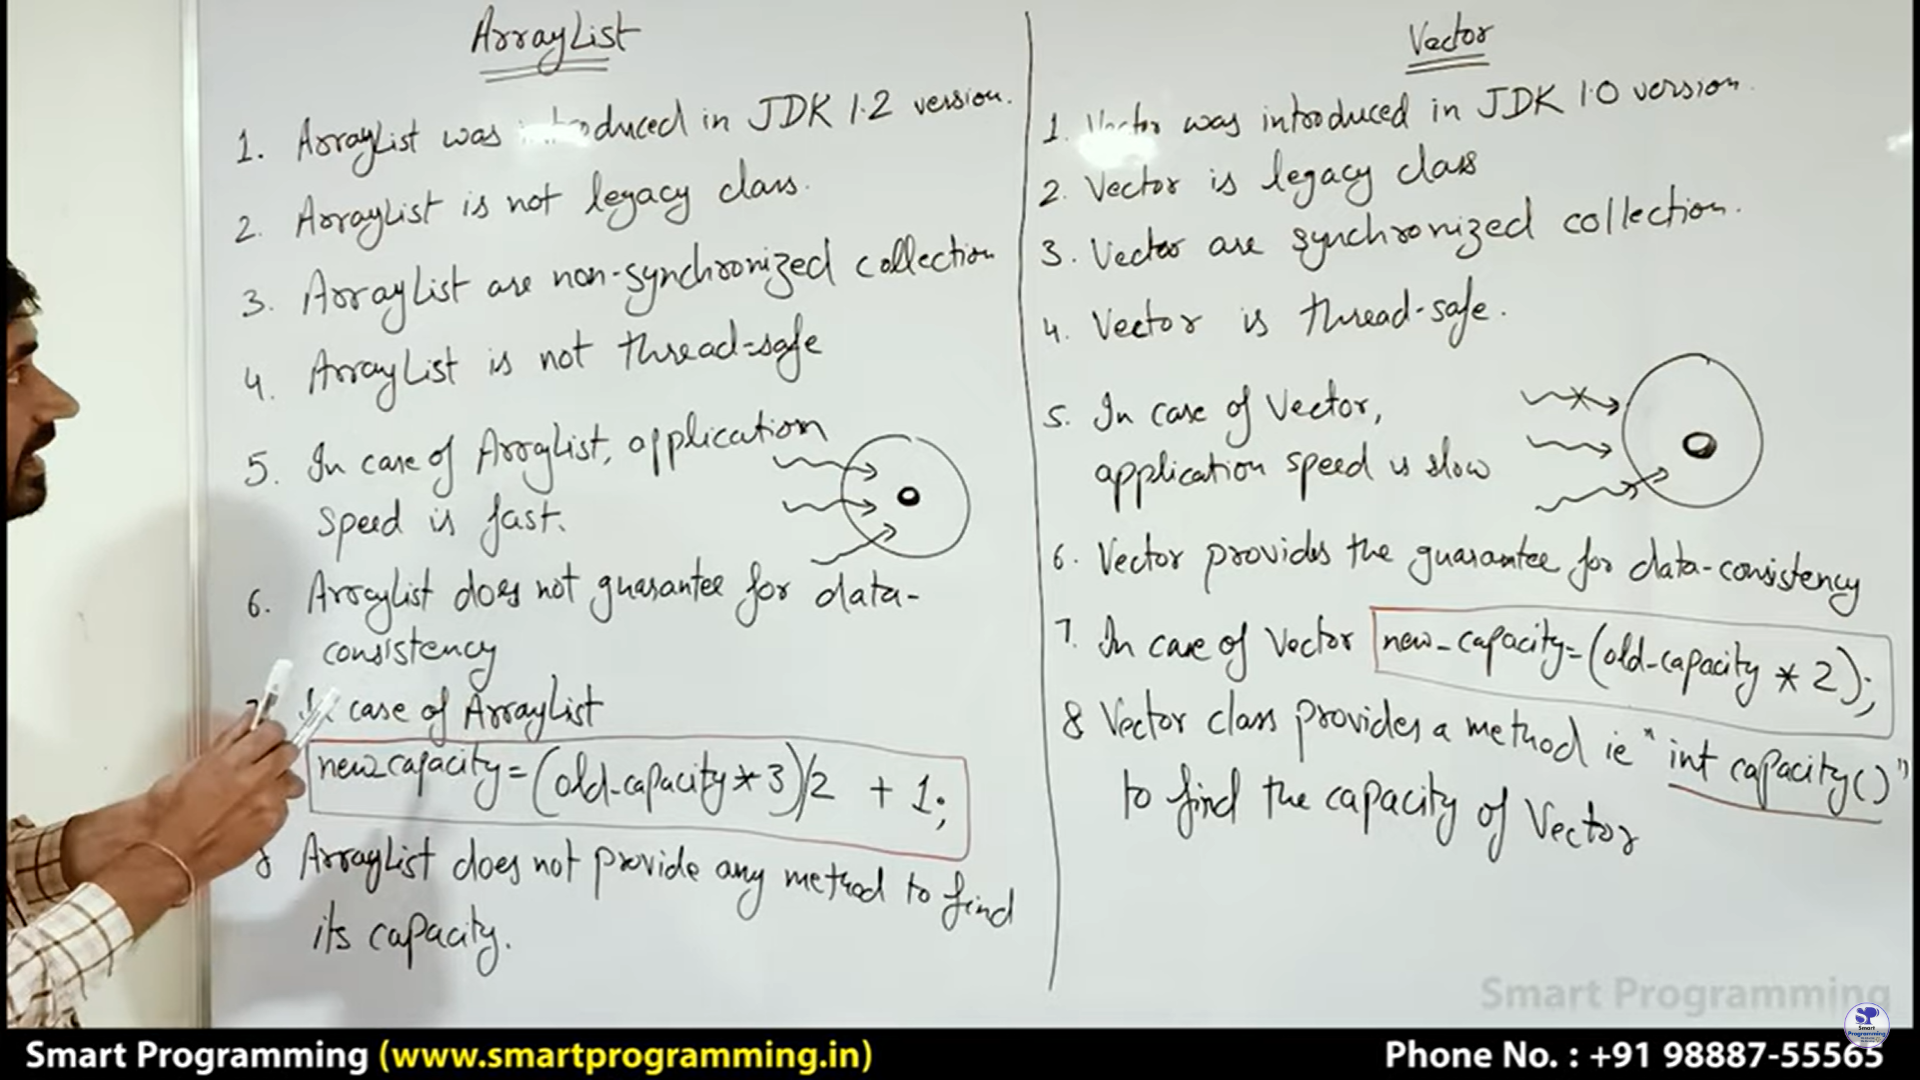 ArrayList
1. ArrayList was introduced in JDK 1.2 version.
2. ArrayList is not legacy class.
3. ArrayList are non-synchronized collection
4. ArrayList is not thread-safe
5. In case of ArrayList, application
speed is fast.
6. ArrayList does not guarantee for data-
consistency
In case of ArrayList
new_capacity = (old_capacity * 3)/2 + 1;
8 ArrayList does not provide any method to find
its capacity.
Vector
1. Vector was introduced in JDK 1.0 version.
2. Vector is legacy class
3. Vector are synchronized collection.
4. Vector is thread-safe.
5. In case of Vector,
application speed is slow
6. Vector provides the guarantee for data-consistency
7. In case of Vector new_capacity = (old_capacity * 2);
8 Vector class provides a method ie "int capacity()"
to find the capacity of Vector
Smart Programming
SP
Smart
Programming
Smart Programming (www.smartprogramming.in)
Phone No. : +91 98887-55565